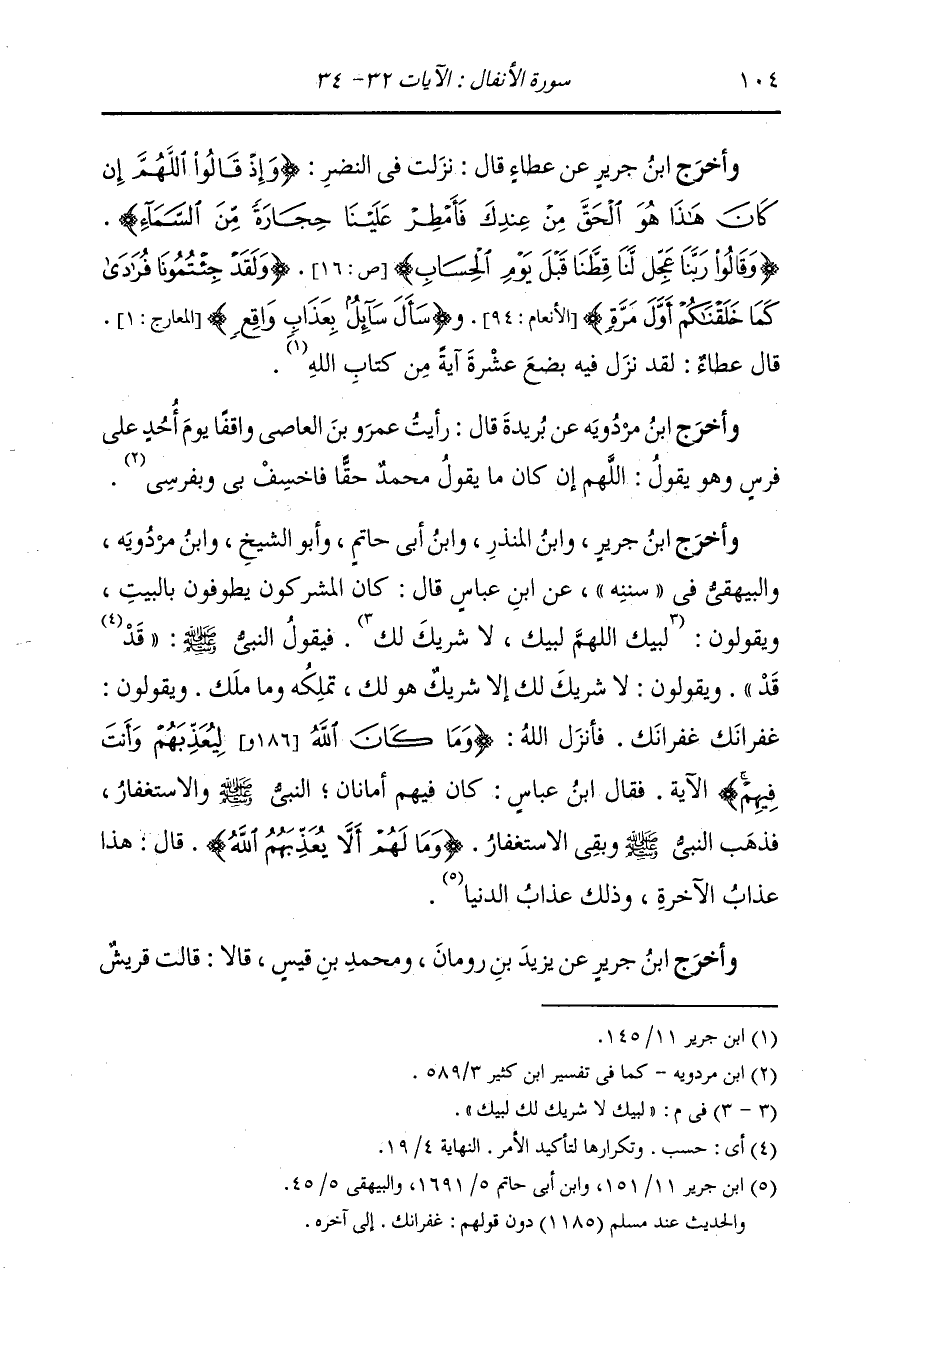 ١٠٤ سورة الأنفال : الآيات ٣٢- ٣٤
وأخرَج ابنُ جريرٍ عن عطاءٍ قال : نزَلت فى النضرِ : ﴿وَإِذْ قَالُوا۟ ٱللَّهُمَّ إِن
كَانَ هَٰذَا هُوَ ٱلْحَقَّ مِنْ عِندِكَ فَأَمْطِرْ عَلَيْنَا حِجَارَةً مِّنَ ٱلسَّمَآءِ﴾ .
﴿وَقَالُوا۟ رَبَّنَا عَجِّل لَّنَا قِطَّنَا قَبْلَ يَوْمِ ٱلْحِسَابِ﴾ [ص : ١٦] . ﴿وَلَقَدْ جِئْتُمُونَا فُرَٰدَىٰ
كَمَا خَلَقْنَٰكُمْ أَوَّلَ مَرَّةٍ﴾ [الأنعام : ٩٤] . و﴿سَأَلَ سَآئِلٌۢ بِعَذَابٍ وَاقِعٍ﴾ [المعارج : ١] .
قال عطاءٌ : لقد نزَل فيه بضعَ عشْرةَ آيةً مِن كتابِ اللهِ(١) .
وأخرَج ابنُ مرْدُويَه عن بُريدةَ قال : رأيتُ عمرَو بنَ العاصى واقفًا يومَ أُحُدٍ على
فرسٍ وهو يقولُ : اللَّهم إن كان ما يقولُ محمدٌ حقًّا فاخسِفْ بى وبفرسِى(٢) .
وأخرَج ابنُ جريرٍ ، وابنُ المنذرِ ، وابنُ أبى حاتمٍ ، وأبو الشيخِ ، وابنُ مرْدُويَه ،
والبيهقىُّ فى « سننِه » ، عن ابنِ عباسٍ قال : كان المشركون يطوفون بالبيتِ ،
ويقولون : (٣لبيك اللهمَّ لبيك ، لا شريكَ لك٣) . فيقولُ النبىُّ ﷺ : « قَدْ(٤)
قَدْ » . ويقولون : لا شريكَ لك إلا شريكٌ هو لك ، تملِكُه وما ملَك . ويقولون :
غفرانَك غفرانَك . فأنزَل اللهُ : ﴿وَمَا كَانَ ٱللَّهُ [١٨٦و] لِيُعَذِّبَهُمْ وَأَنتَ
فِيهِمْۚ﴾ الآية . فقال ابنُ عباسٍ : كان فيهم أمانان ؛ النبىُّ ﷺ والاستغفارُ ،
فذهَب النبىُّ ﷺ وبقِى الاستغفارُ . ﴿وَمَا لَهُمْ أَلَّا يُعَذِّبَهُمُ ٱللَّهُ﴾ . قال : هذا
عذابُ الآخرةِ ، وذلك عذابُ الدنيا(٥) .
وأخرَج ابنُ جريرٍ عن يزيدَ بنِ رومانَ ، ومحمدِ بنِ قيسٍ ، قالا : قالت قريشٌ
(١) ابن جرير ١١/ ١٤٥.
(٢) ابن مردويه – كما فى تفسير ابن كثير ٥٨٩/٣ .
(٣ – ٣) فى م : « لبيك لا شريك لك لبيك » .
(٤) أى : حسب . وتكرارها لتأكيد الأمر . النهاية ٤/ ١٩.
(٥) ابن جرير ١١/ ١٥١، وابن أبى حاتم ٥/ ١٦٩١، والبيهقى ٥/ ٤٥.
والحديث عند مسلم (١١٨٥) دون قولهم : غفرانك . إلى آخره .